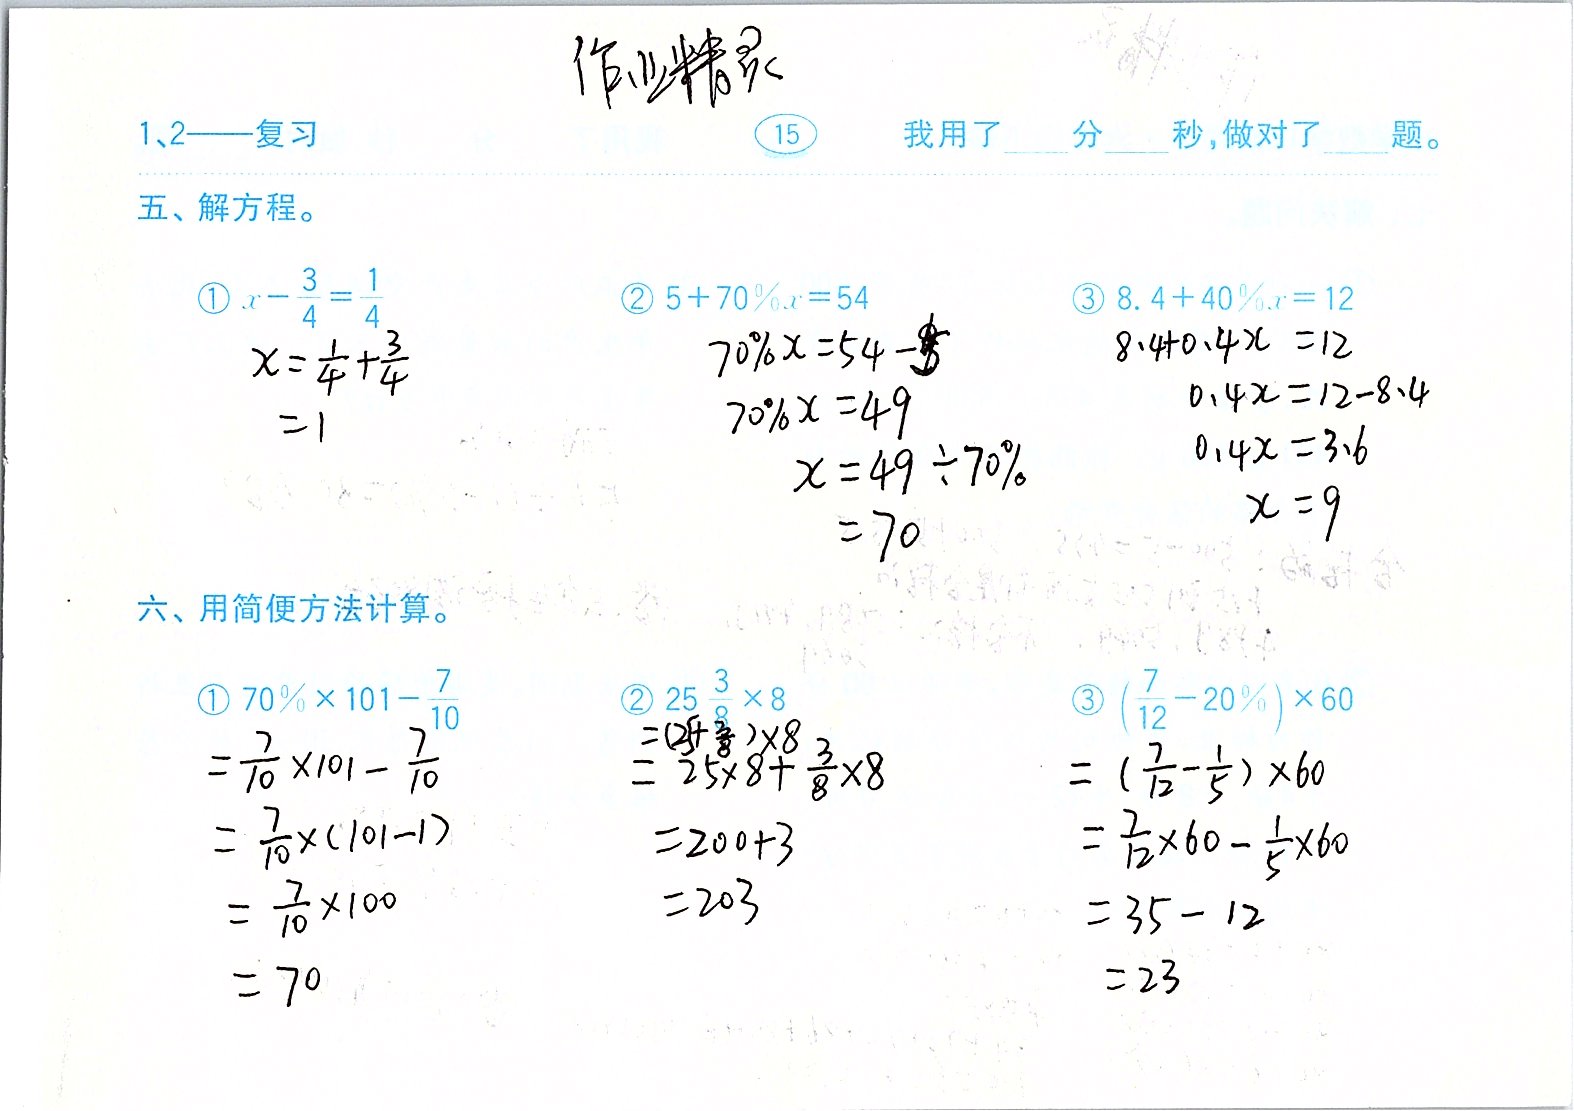 作业精灵
1、2——复习 15 我用了____分____秒,做对了____题。
五、解方程。
① x-3/4=1/4 ② 5+70%x=54 ③ 8.4+40%x=12
x=1/4+3/4 70%x=54-5 8.4+0.4x=12
=1 70%x=49 0.4x=12-8.4
x=49÷70% 0.4x=3.6
=70 x=9
六、用简便方法计算。
① 70%×101-7/10 ② 25 3/8×8 ③ (7/12-20%)×60
=7/10×101-7/10 =(25+3/8)×8 =(7/12-1/5)×60
=7/10×(101-1) =25×8+3/8×8 =7/12×60-1/5×60
=7/10×100 =200+3 =35-12
=70 =203 =23